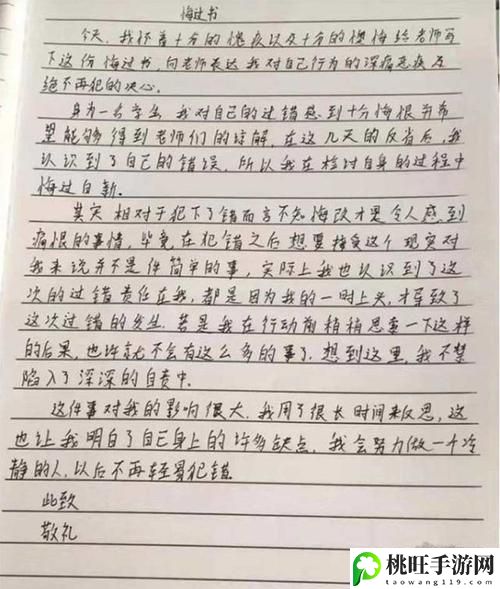 悔过书
今天，我怀着十分的愧疚以及十分的懊悔给老师写
下这份悔过书，向老师表达我对自己行为的深痛恶疾及
绝不再犯的决心。
身为一名学生，我对自己的过错感到十分悔恨，并希
望能够得到老师们的谅解，在这几天的反省后，我
认识到了自己的错误，所以我在检讨自身的过程中
悔过自新.
其实，相对于犯下了错而言不知悔改才是令人感到
痛恨的事情，毕竟在犯错之后想要接受这个现实对
我来说并不是件简单的事，实际上我也认识到了这
次的过错责任在我，都是因为我的一时上头，才导致了
这次过错的发生.若是我在行动前稍稍思量一下这样
的后果，也许就不会有这么多的事了.想到这里，我不禁
陷入了深深的自责中.
这件事对我的影响很大，我用了很长时间来反思，这
也让我明白了自己身上的许多缺点，我会努力做一个冷
静的人，以后不再轻易犯错.
此致
敬礼
桃旺手游网
taowang119.com